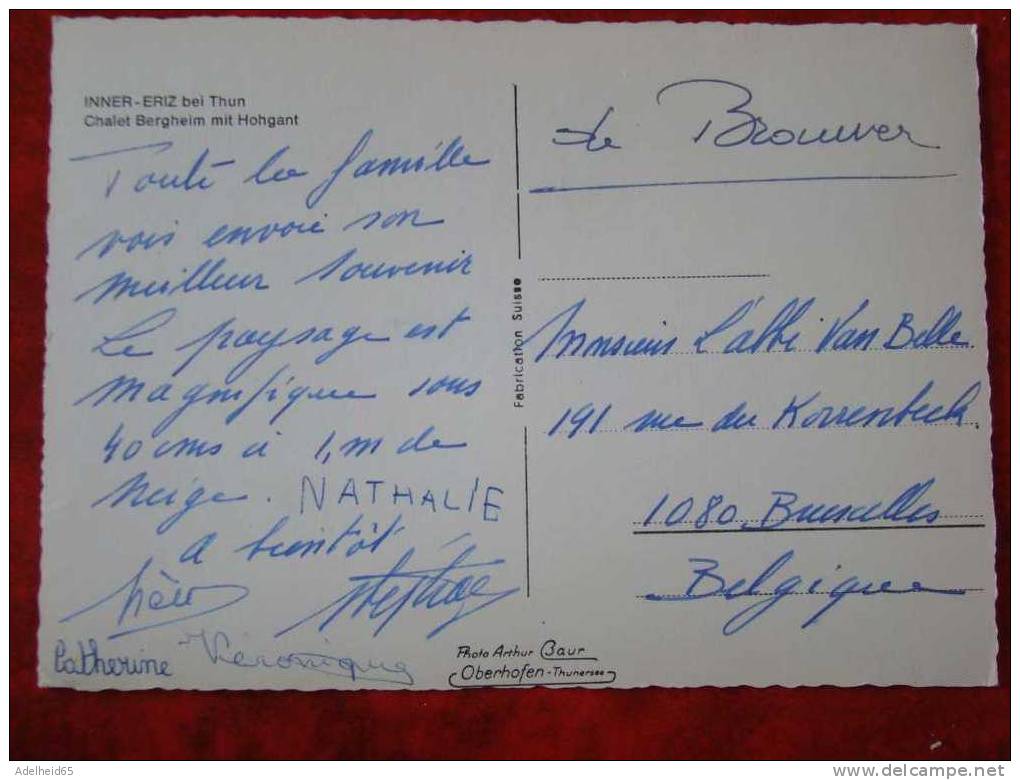 INNER-ERIZ bei Thun
Chalet Bergheim mit Hohgant
Toute la famille
vous envoie son
meilleur souvenir
Le paysage est
magnifique sous
40 cms à 1,m de
neige. NATHALIE
a bientôt
Stéphane
Catherine Véronique
Fabrication Suisse
Photo Arthur Baur
Oberhofen-Thunersee
de Brouwer
Monsieur L'abbé Van Belle
191 rue du Korrenbeek
1080 Bruxelles
Belgique
Adelheid65
http://www.delcampe.net